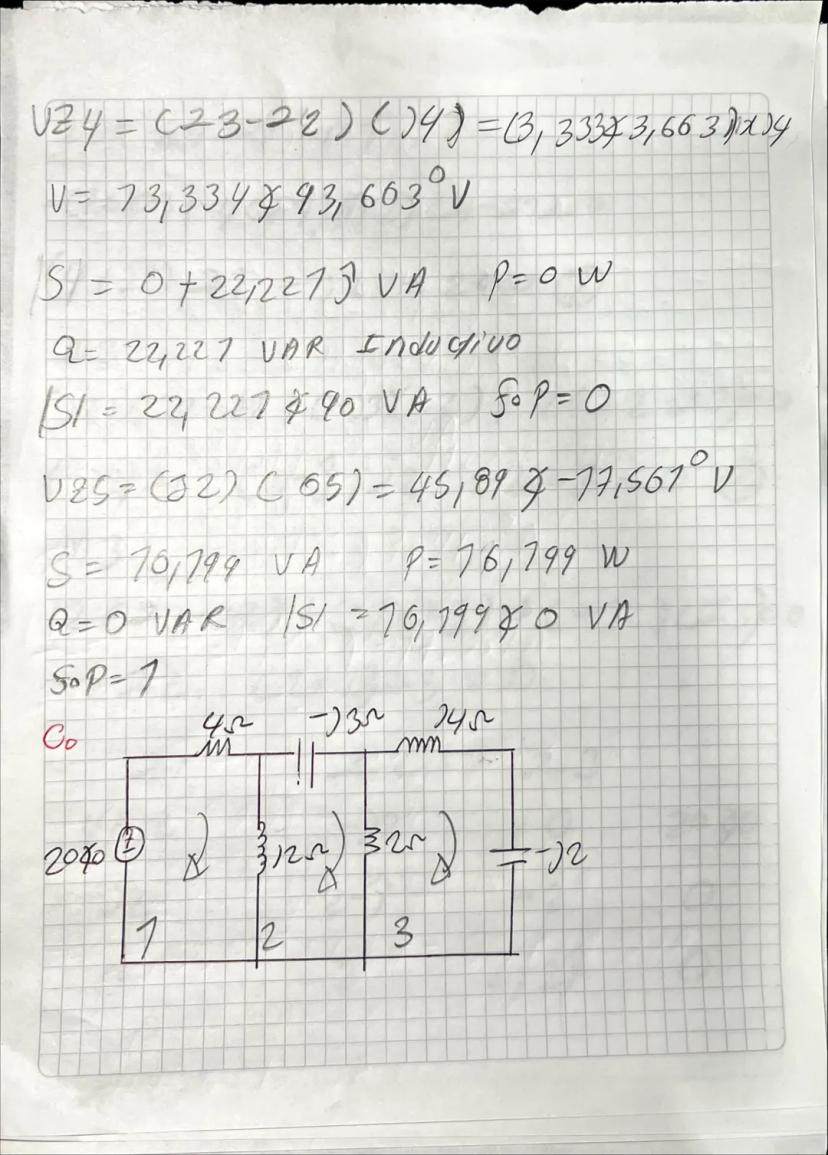 VZ4 = (I3-I2) (J4) = (3,333∡3,663)xJ4
V= 13,334∡93,663° V
|S| = 0 + 22,221J VA P=0 W
Q= 22,221 VAR Inductivo
|S| = 22,221∡90 VA foP=0
VZ5=(I2) (65)= 45,89∡-17,561° V
S= 16,199 VA P=16,199 W
Q=0 VAR |S| =16,199∡0 VA
foP=1
C.
4Ω -J3Ω J4Ω
20∡0 J2Ω 2Ω -J2
1 2 3